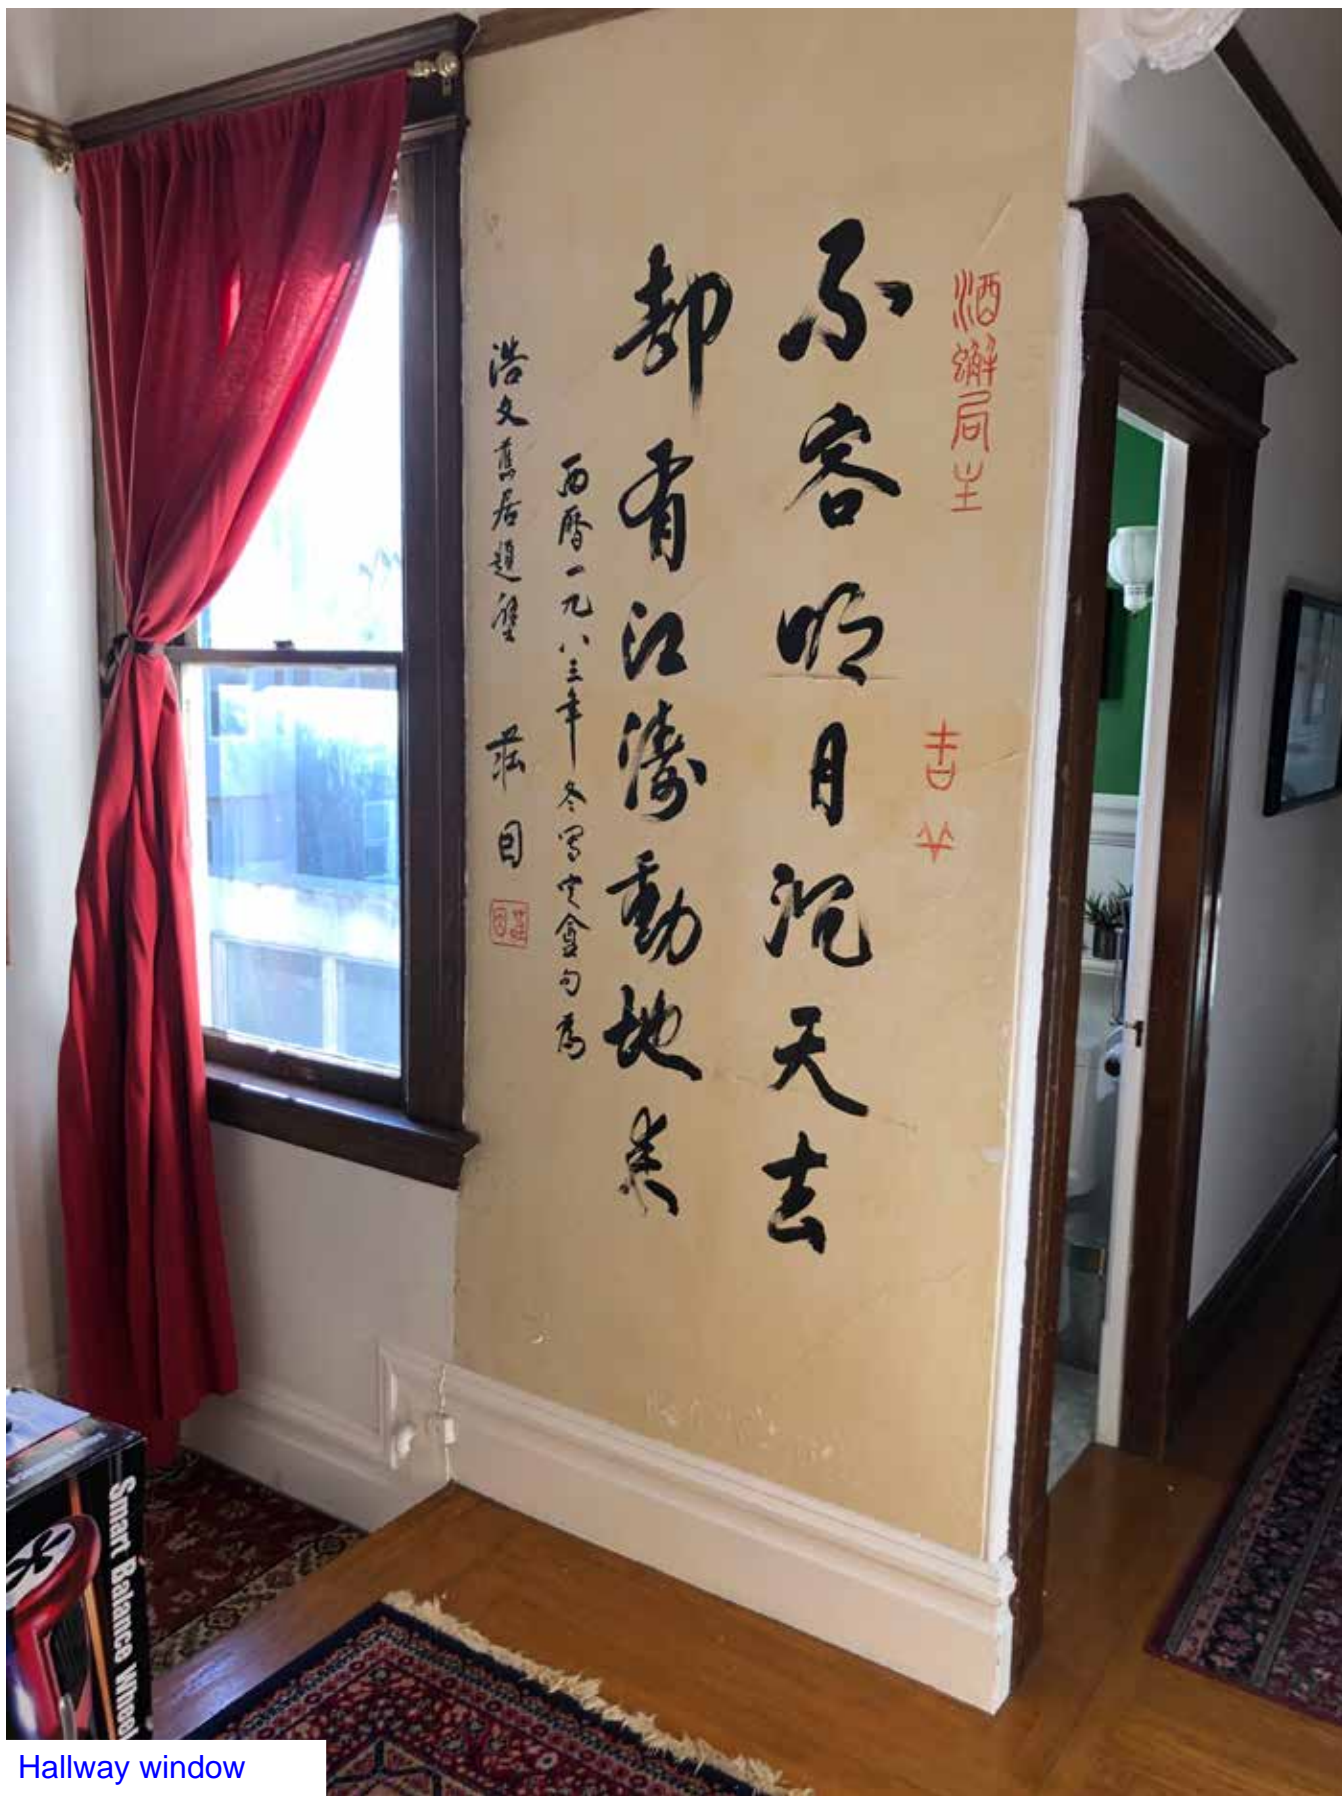 酒蠏局主
不容明月沉天去
却有江濤動地来
西曆一九八三年冬写定盦句為
浩文舊居題壁 莊因
莊因
Smart Balance Wheel
Hallway window